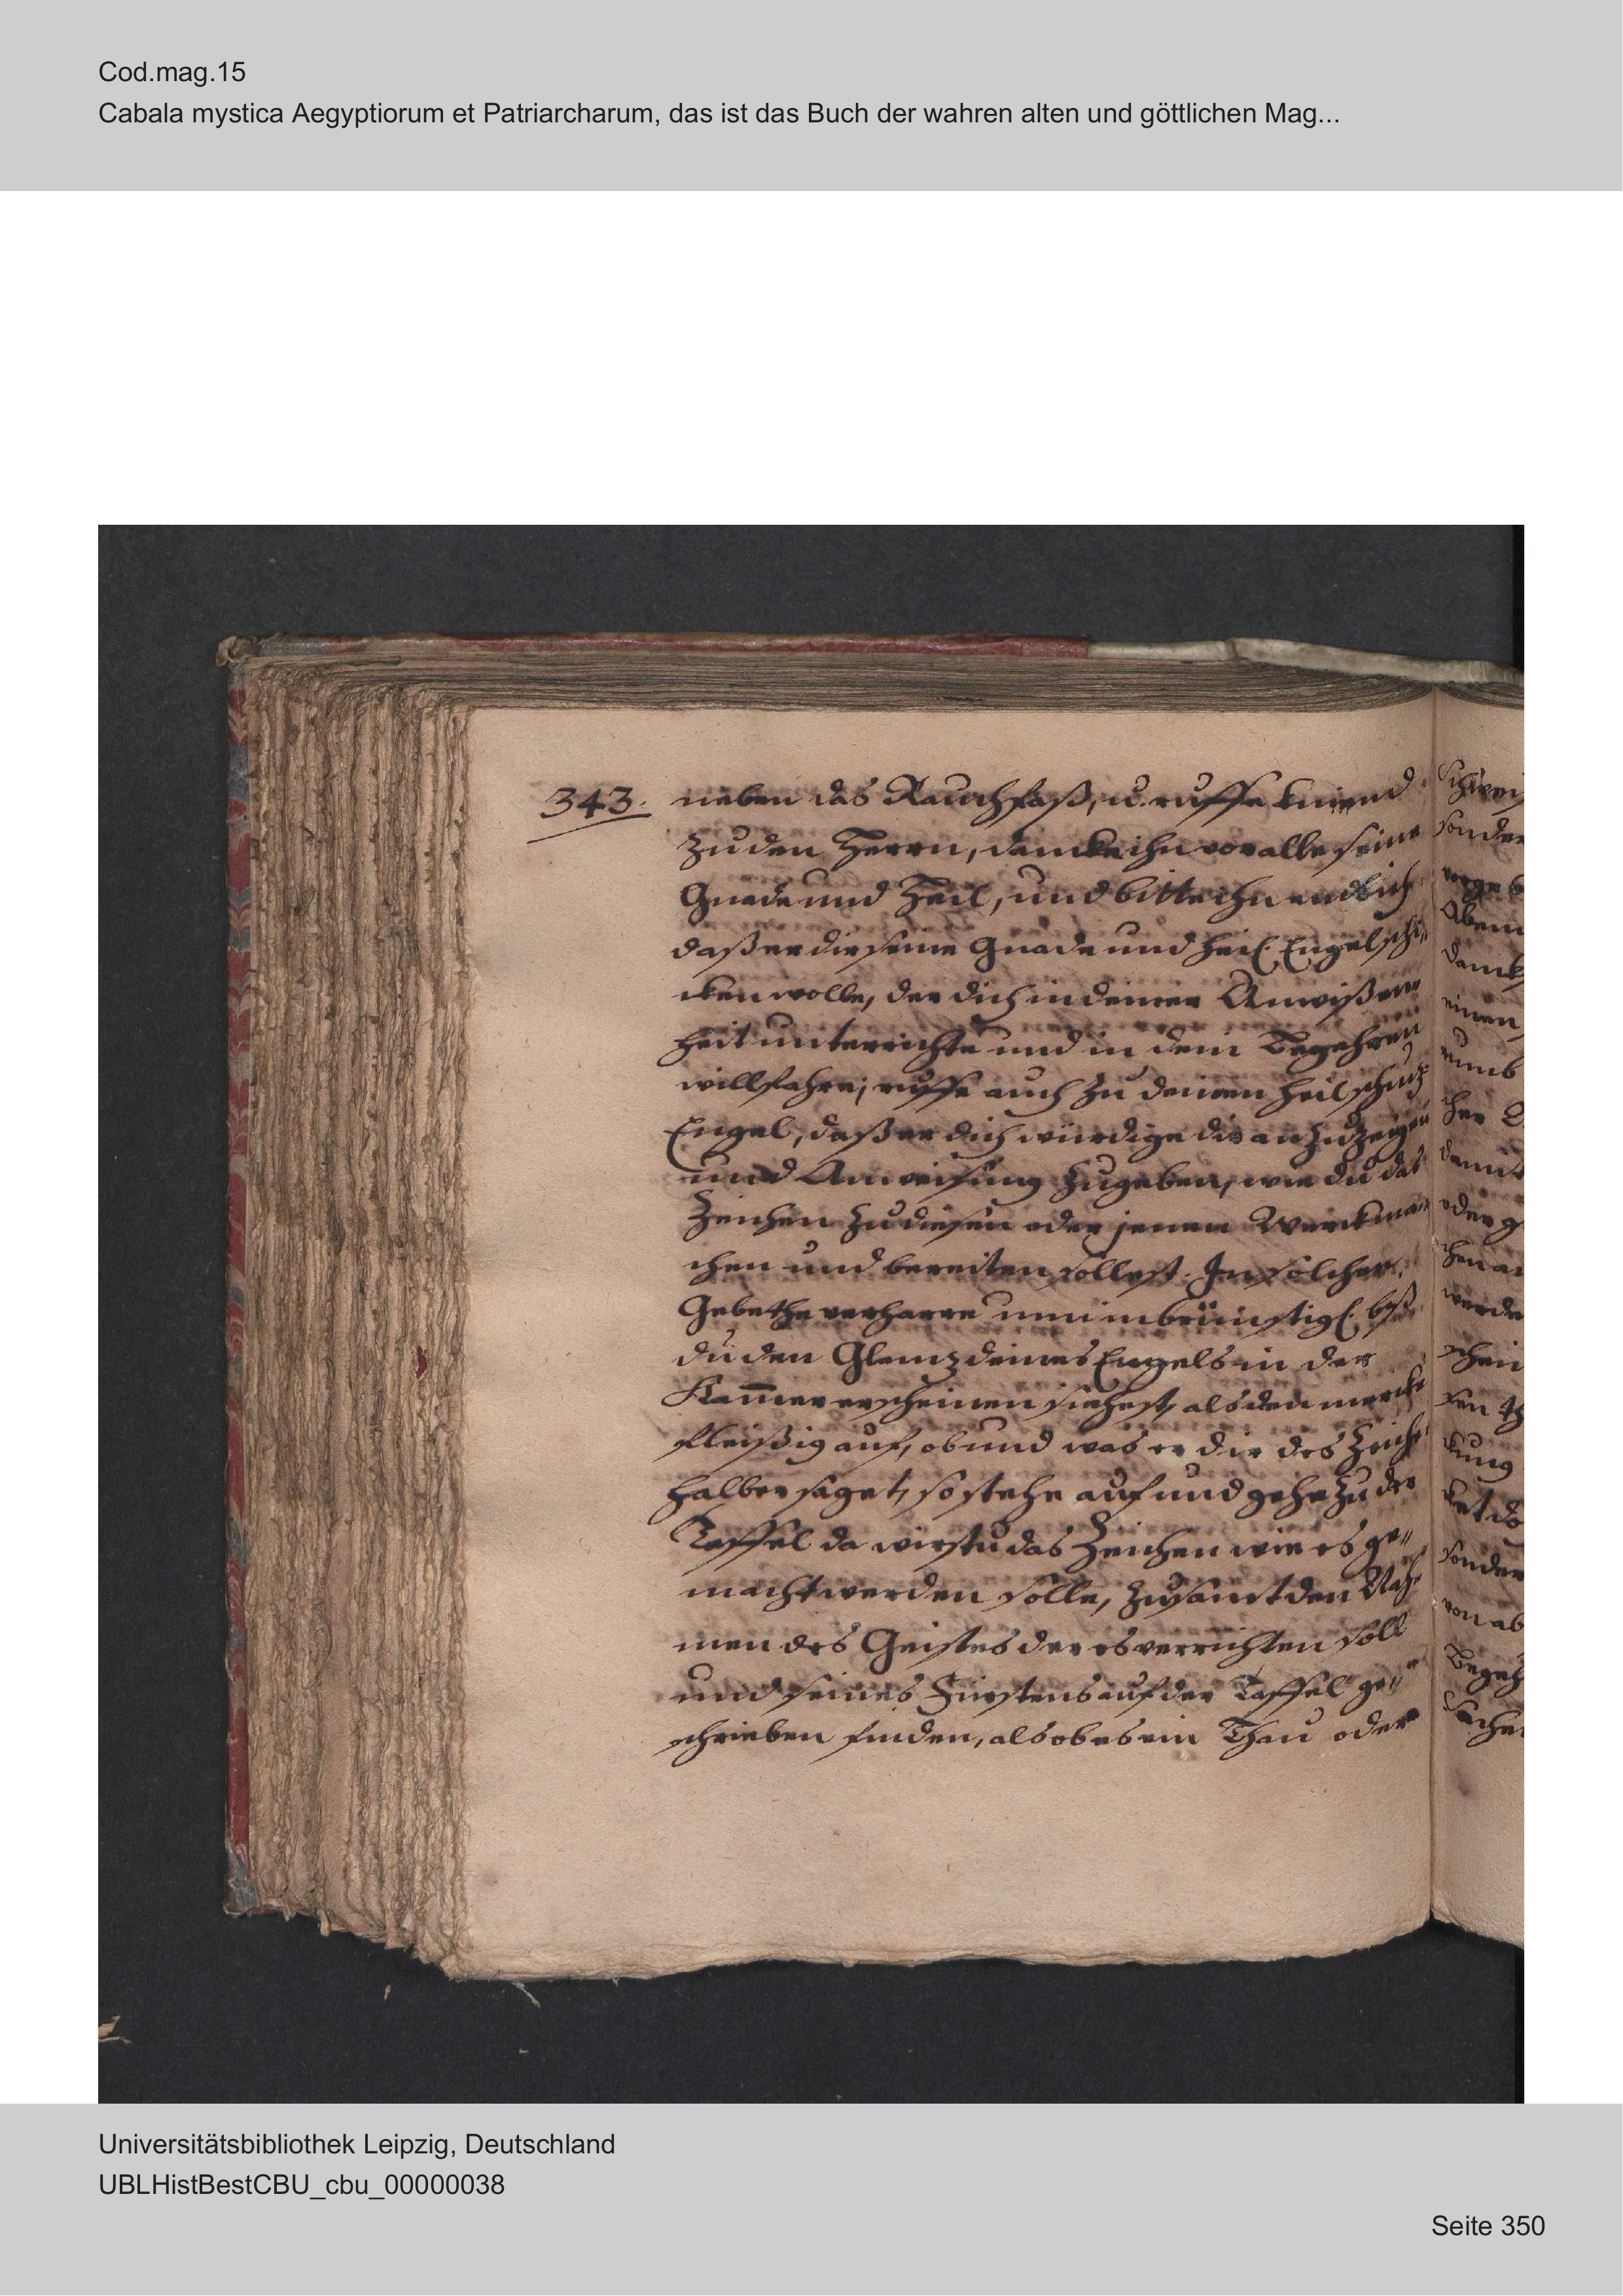 Cod.mag.15
Cabala mystica Aegyptiorum et Patriarcharum, das ist das Buch der wahren alten und göttlichen Mag...
343. neben das Rauchfaß, u. ruffe kniend
zu den Herrn, dancke ihn vor alle seine
Gnade und Heil, und bitte ihn endlich
daß er dir seine Gnade und heil. Engel schi„
cken wolle, der dich in deiner Unwißen„
heit unterrichte und in dem Begehren
willfahre; ruffe auch zu deinen heil schutz
Engel, daß er dich würdige dir anzuzeigen
und Anweisung zugeben, wie du das
Zeichen zu diesen oder jenem Werck ma„
chen und bereiten sollest. In solcher
Gebethe verharre nun inbrünstigl. biß
du den Glanz deines Engels in der
Kam̅er erscheinen siehest, als den mercke
fleißig auf, ob und was er dir des Zeich„
halber saget, so stehe auf und gehe zu der
Taffel da wirstu das Zeichen wie es ge„
macht werden solle, zusamt den Nah„
men des Geistes der es verrichten soll
und seines Fürstens auf der Taffel ge„
schrieben finden, als ob es ein Thau oder
Universitätsbibliothek Leipzig, Deutschland
UBLHistBestCBU_cbu_00000038
Seite 350